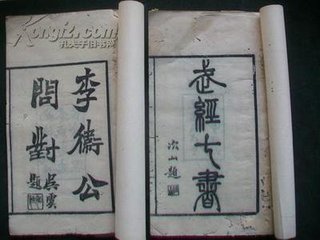 Kongfz.com
孔夫子旧书网
李衞公
問對
吳雲
題
武經七書
次山題